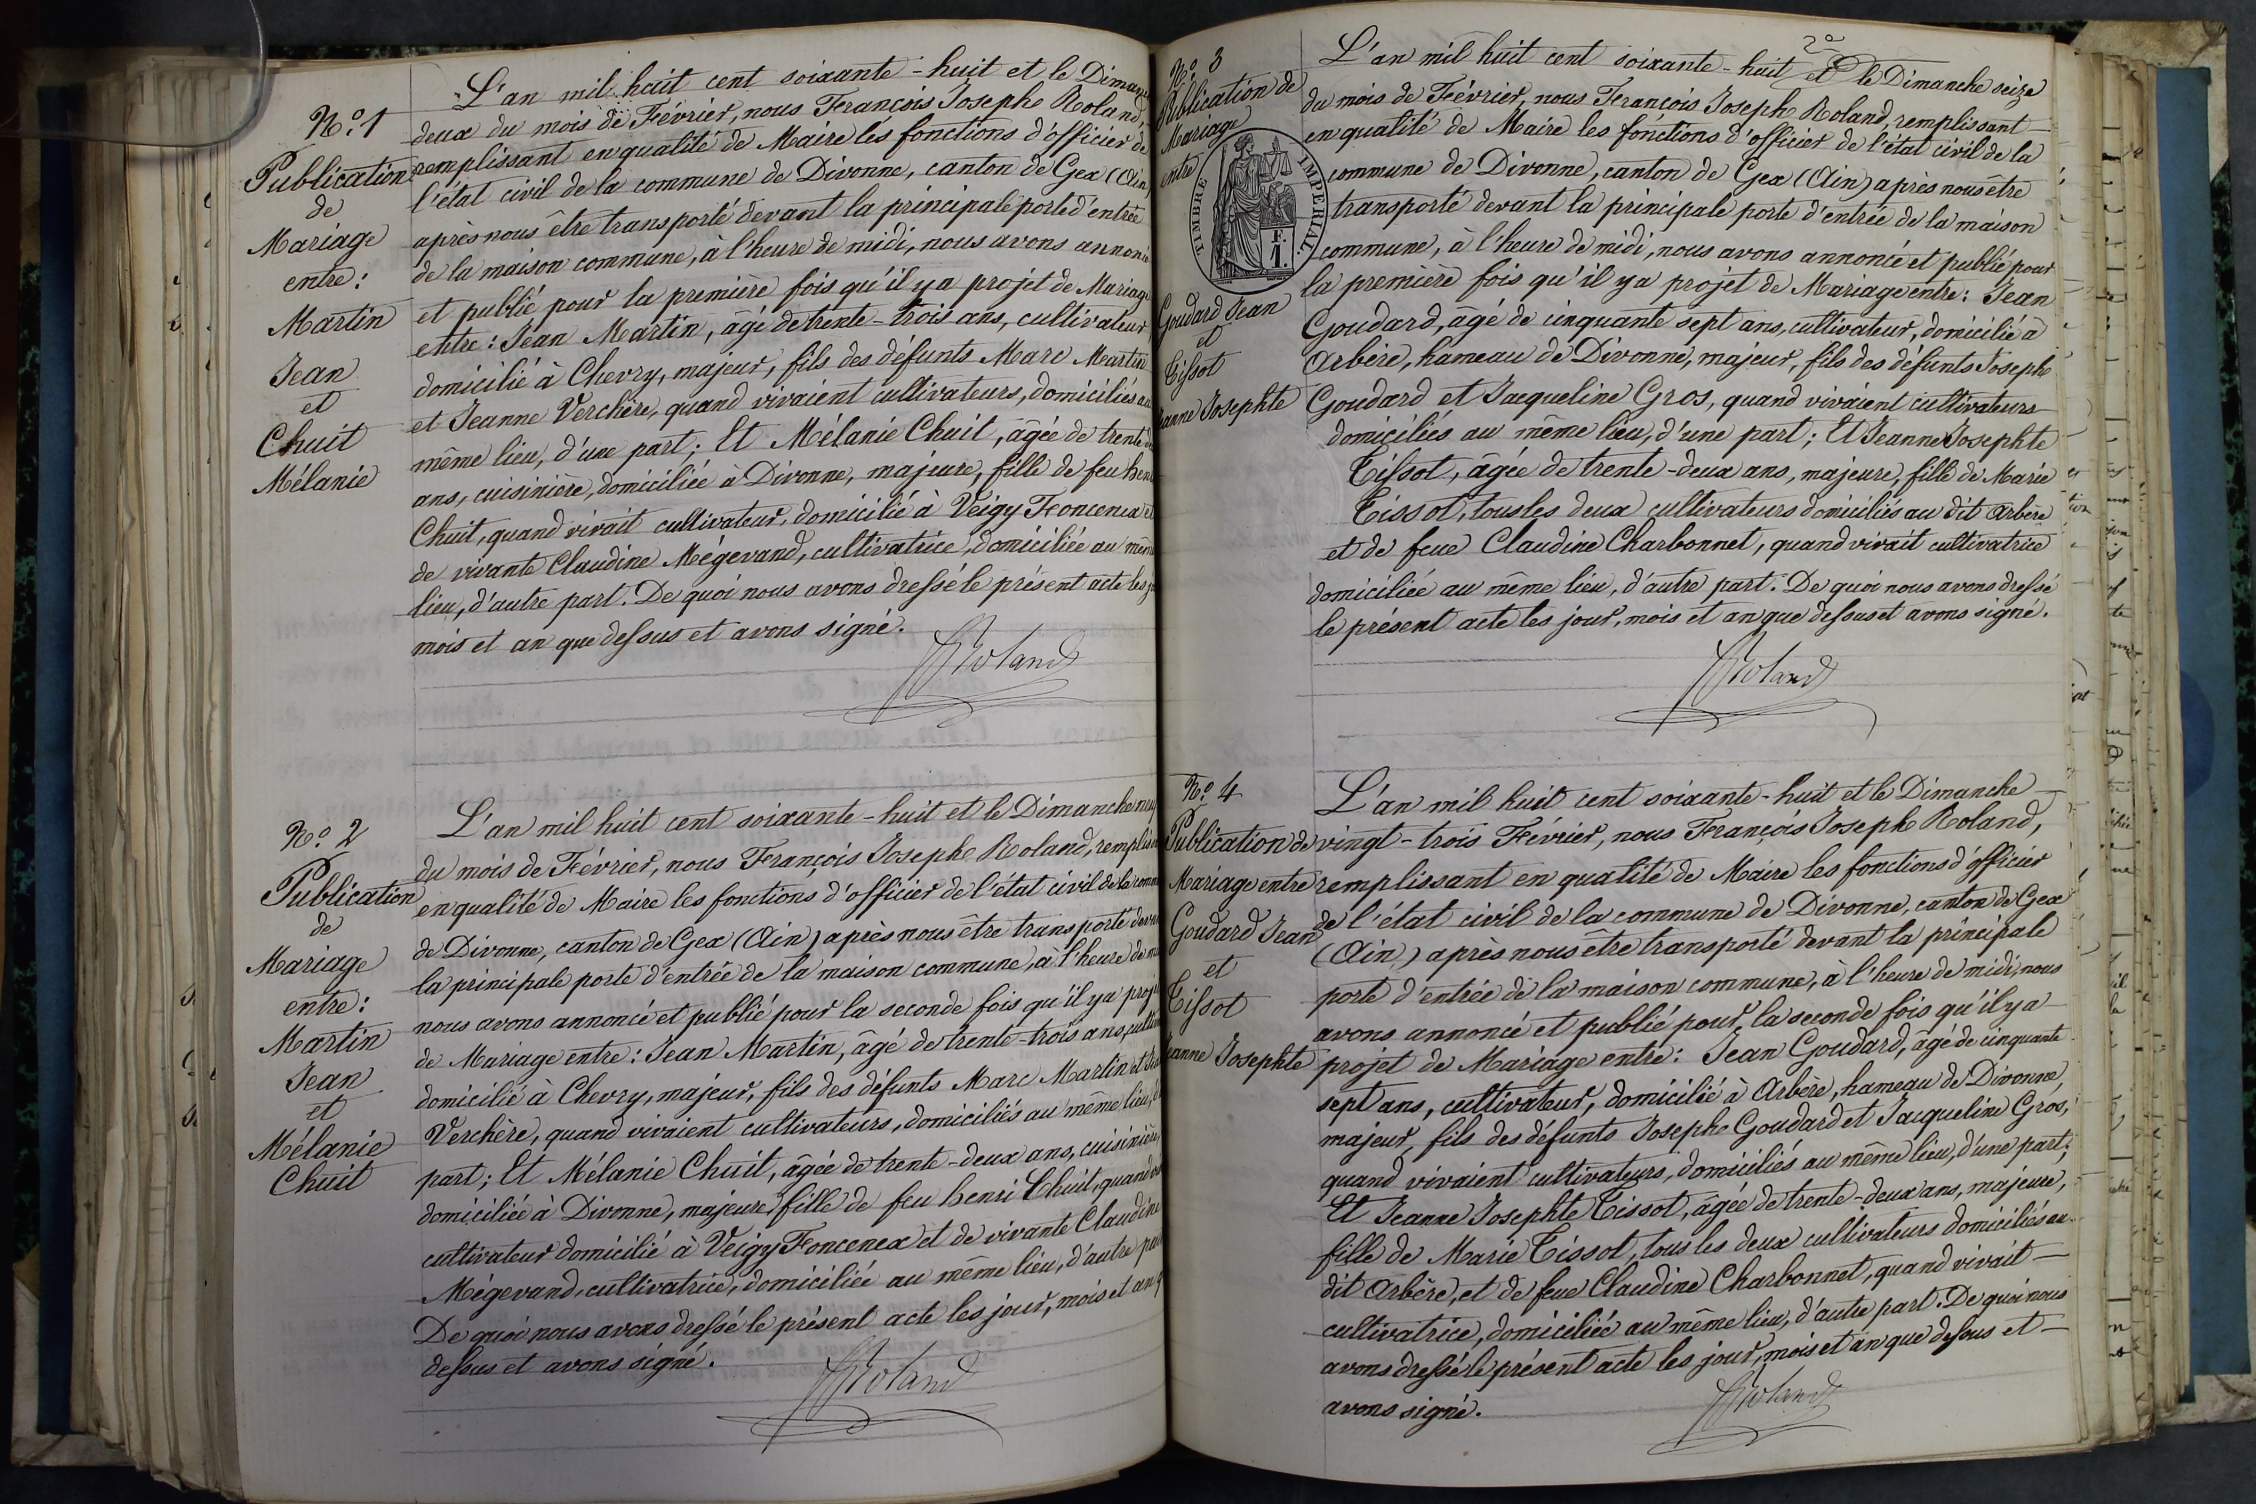 N.º 1
Publication
de
Mariage
entre :
Martin
Jean
et
Chuit
Mélanie
L'an mil huit cent soixante-huit et le
deux du mois de Février, nous François Joseph Roland,
remplissant en qualité de Maire les fonctions d'officier de
l'état civil de la commune de Divonne, canton de Gex (Ain)
après nous être transporté devant la principale porte d'entrée
de la maison commune, à l'heure de midi, nous avons annoncé
et publié pour la première fois qu'il y a projet de Mariage
entre : Jean Martin, âgé de trente-trois ans, cultivateur,
domicilié à Chevry, majeur, fils des défunts Marc Martin
et Jeanne Verchère, quand vivaient cultivateurs, domiciliés au
même lieu, d'une part ; Et Mélanie Chuit, âgée de trente
ans, cuisinière, domiciliée à Divonne, majeure, fille de feu
Chuit, quand vivait cultivateur, domicilié à Veigy Foncenex
de vivante Claudine Mégevand, cultivatrice, domiciliée au même
lieu, d'autre part. De quoi nous avons dressé le présent acte les
mois et an que dessus et avons signé.
Roland
N.º 2
Publication
de
Mariage
entre :
Martin
Jean
et
Mélanie
Chuit
L'an mil huit cent soixante-huit et le Dimanche
du mois de Février, nous François Joseph Roland,
en qualité de Maire les fonctions d'officier de l'état civil de la
de Divonne, canton de Gex (Ain) après nous être transporté
la principale porte d'entrée de la maison commune, à l'heure de
nous avons annoncé et publié pour la seconde fois qu'il y a
de Mariage entre : Jean Martin, âgé de trente-trois ans,
domicilié à Chevry, majeur, fils des défunts Marc Martin et
Verchère, quand vivaient cultivateurs, domiciliés au même lieu,
part ; Et Mélanie Chuit, âgée de trente-deux ans, cuisinière,
domiciliée à Divonne, majeure, fille de feu henri Chuit, quand
cultivateur domicilié à Veigy Foncenex et de vivante Claudine
Mégevand, cultivatrice, domiciliée au même lieu, d'autre
De quoi nous avons dressé le présent acte les jour, mois et an
dessus et avons signé.
Roland
2e
N.º 3
Publication de
Mariage
entre
TIMBRE IMPERIAL
F.
1.
Goudard Jean
et
Tissot
Josephte
L'an mil huit cent soixante-huit et le Dimanche seize
du mois de Février, nous François Joseph Roland, remplissant
en qualité de Maire les fonctions d'officier de l'état civil de la
commune de Divonne, canton de Gex (Ain) après nous être
transporté devant la principale porte d'entrée de la maison
commune, à l'heure de midi, nous avons annoncé et publié pour
la première fois qu'il y a projet de Mariage entre : Jean
Goudard, âgé de cinquante sept ans, cultivateur, domicilié à
Arbère, hameau de Divonne, majeur, fils des défunts Joseph
Goudard et Jacqueline Gros, quand vivaient cultivateurs
domiciliés au même lieu, d'une part ; Et Jeanne Josephte
Tissot, âgée de trente-deux ans, majeure, fille de Marie
Tissot, tous les deux cultivateurs domiciliés au dit Arbère
et de feue Claudine Charbonnet, quand vivait cultivatrice
domiciliée au même lieu, d'autre part. De quoi nous avons dressé
le présent acte les jour, mois et an que dessus et avons signé.
Roland
N.º 4
Publication de
Mariage entre
Goudard Jean
et
Tissot
Josephte
L'an mil huit cent soixante-huit et le Dimanche
vingt-trois Février, nous François Joseph Roland,
remplissant en qualité de Maire les fonctions d'officier
de l'état civil de la commune de Divonne, canton de Gex
(Ain) après nous être transporté devant la principale
porte d'entrée de la maison commune, à l'heure de midi, nous
avons annoncé et publié pour la seconde fois qu'il y a
projet de Mariage entre : Jean Goudard, âgé de cinquante
sept ans, cultivateur, domicilié à Arbère, hameau de Divonne,
majeur, fils des défunts Joseph Goudard et Jacqueline Gros,
quand vivaient cultivateurs, domiciliés au même lieu, d'une part ;
Et Jeanne Josephte Tissot, âgée de trente-deux ans, majeure,
fille de Marie Tissot, tous les deux cultivateurs domiciliés au
dit Arbère, et de feue Claudine Charbonnet, quand vivait
cultivatrice, domiciliée au même lieu, d'autre part. De quoi nous
avons dressé le présent acte les jour, mois et an que dessus et
avons signé.
Roland